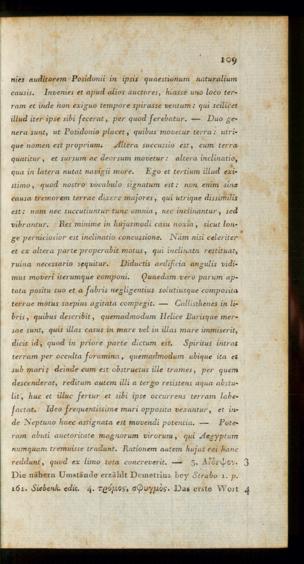 109
nies auditorem Posidonii in ipsis quaestionum naturalium
causis. Invenies et apud alios auctores, hiasse uno loco ter-
ram et inde non exiguo tempore spirasse ventum: qui scilicet
illud iter ipse sibi fecerat, per quod ferebatur. — Duo ge-
nera sunt, ut Posidonio placet, quibus movetur terra: utri-
que nomen est proprium. Altera succussio est, cum terra
quatitur, et sursum ac deorsum movetur: altera inclinatio,
qua in latera nutat navigii more. Ego et tertium illud exi-
stimo, quod nostro vocabulo signatum est: non enim sine
causa tremorem terrae dixere majores, qui utrique dissimilis
est: nam nec succutiuntur tunc omnia, nec inclinantur, sed
vibrantur. Res minime in hujusmodi casu noxia, sicut lon-
ge perniciosior est inclinatio concussione. Nam nisi celeriter
et ex altera parte properabit motus, qui inclinata restituat,
ruina necessario sequitur. Diductis aedificia angulis vidi-
mus moveri iterumque componi. Quaedam vero parum ap-
tata positu suo et a fabris negligentius solutiusque composita
terrae motus saepius agitata compegit. — Callisthenes in li-
bris, quibus describit, quemadmodum Helice Burisque mer-
sae sunt, quis illas casus in mare vel in illas mare immiserit,
dicit id, quod in priore parte dictum est. Spiritus intrat
terram per occulta foramina, quemadmodum ubique ita et
sub mari; deinde cum est obstructus ille trames, per quem
descenderat, reditum autem illi a tergo resistens aqua abstu-
lit, huc et illuc fertur et sibi ipse occurrens terram labe-
factat. Ideo frequentissime mari opposita vexantur, et in-
de Neptuno haec assignata est movendi potentia. — Pote-
ram abuti auctoritate magnorum virorum, qui Aegyptum
numquam tremuisse tradunt. Rationem autem hujus rei hanc
reddunt, quod ex limo tota concreverit. — 3. Αἴδηψον. 3
Die nähern Umstände erzählt Demetrius bey Strabo 1. p.
161. Siebenk. edit. 4. τρόμος, σφυγμός. Das erste Wort 4